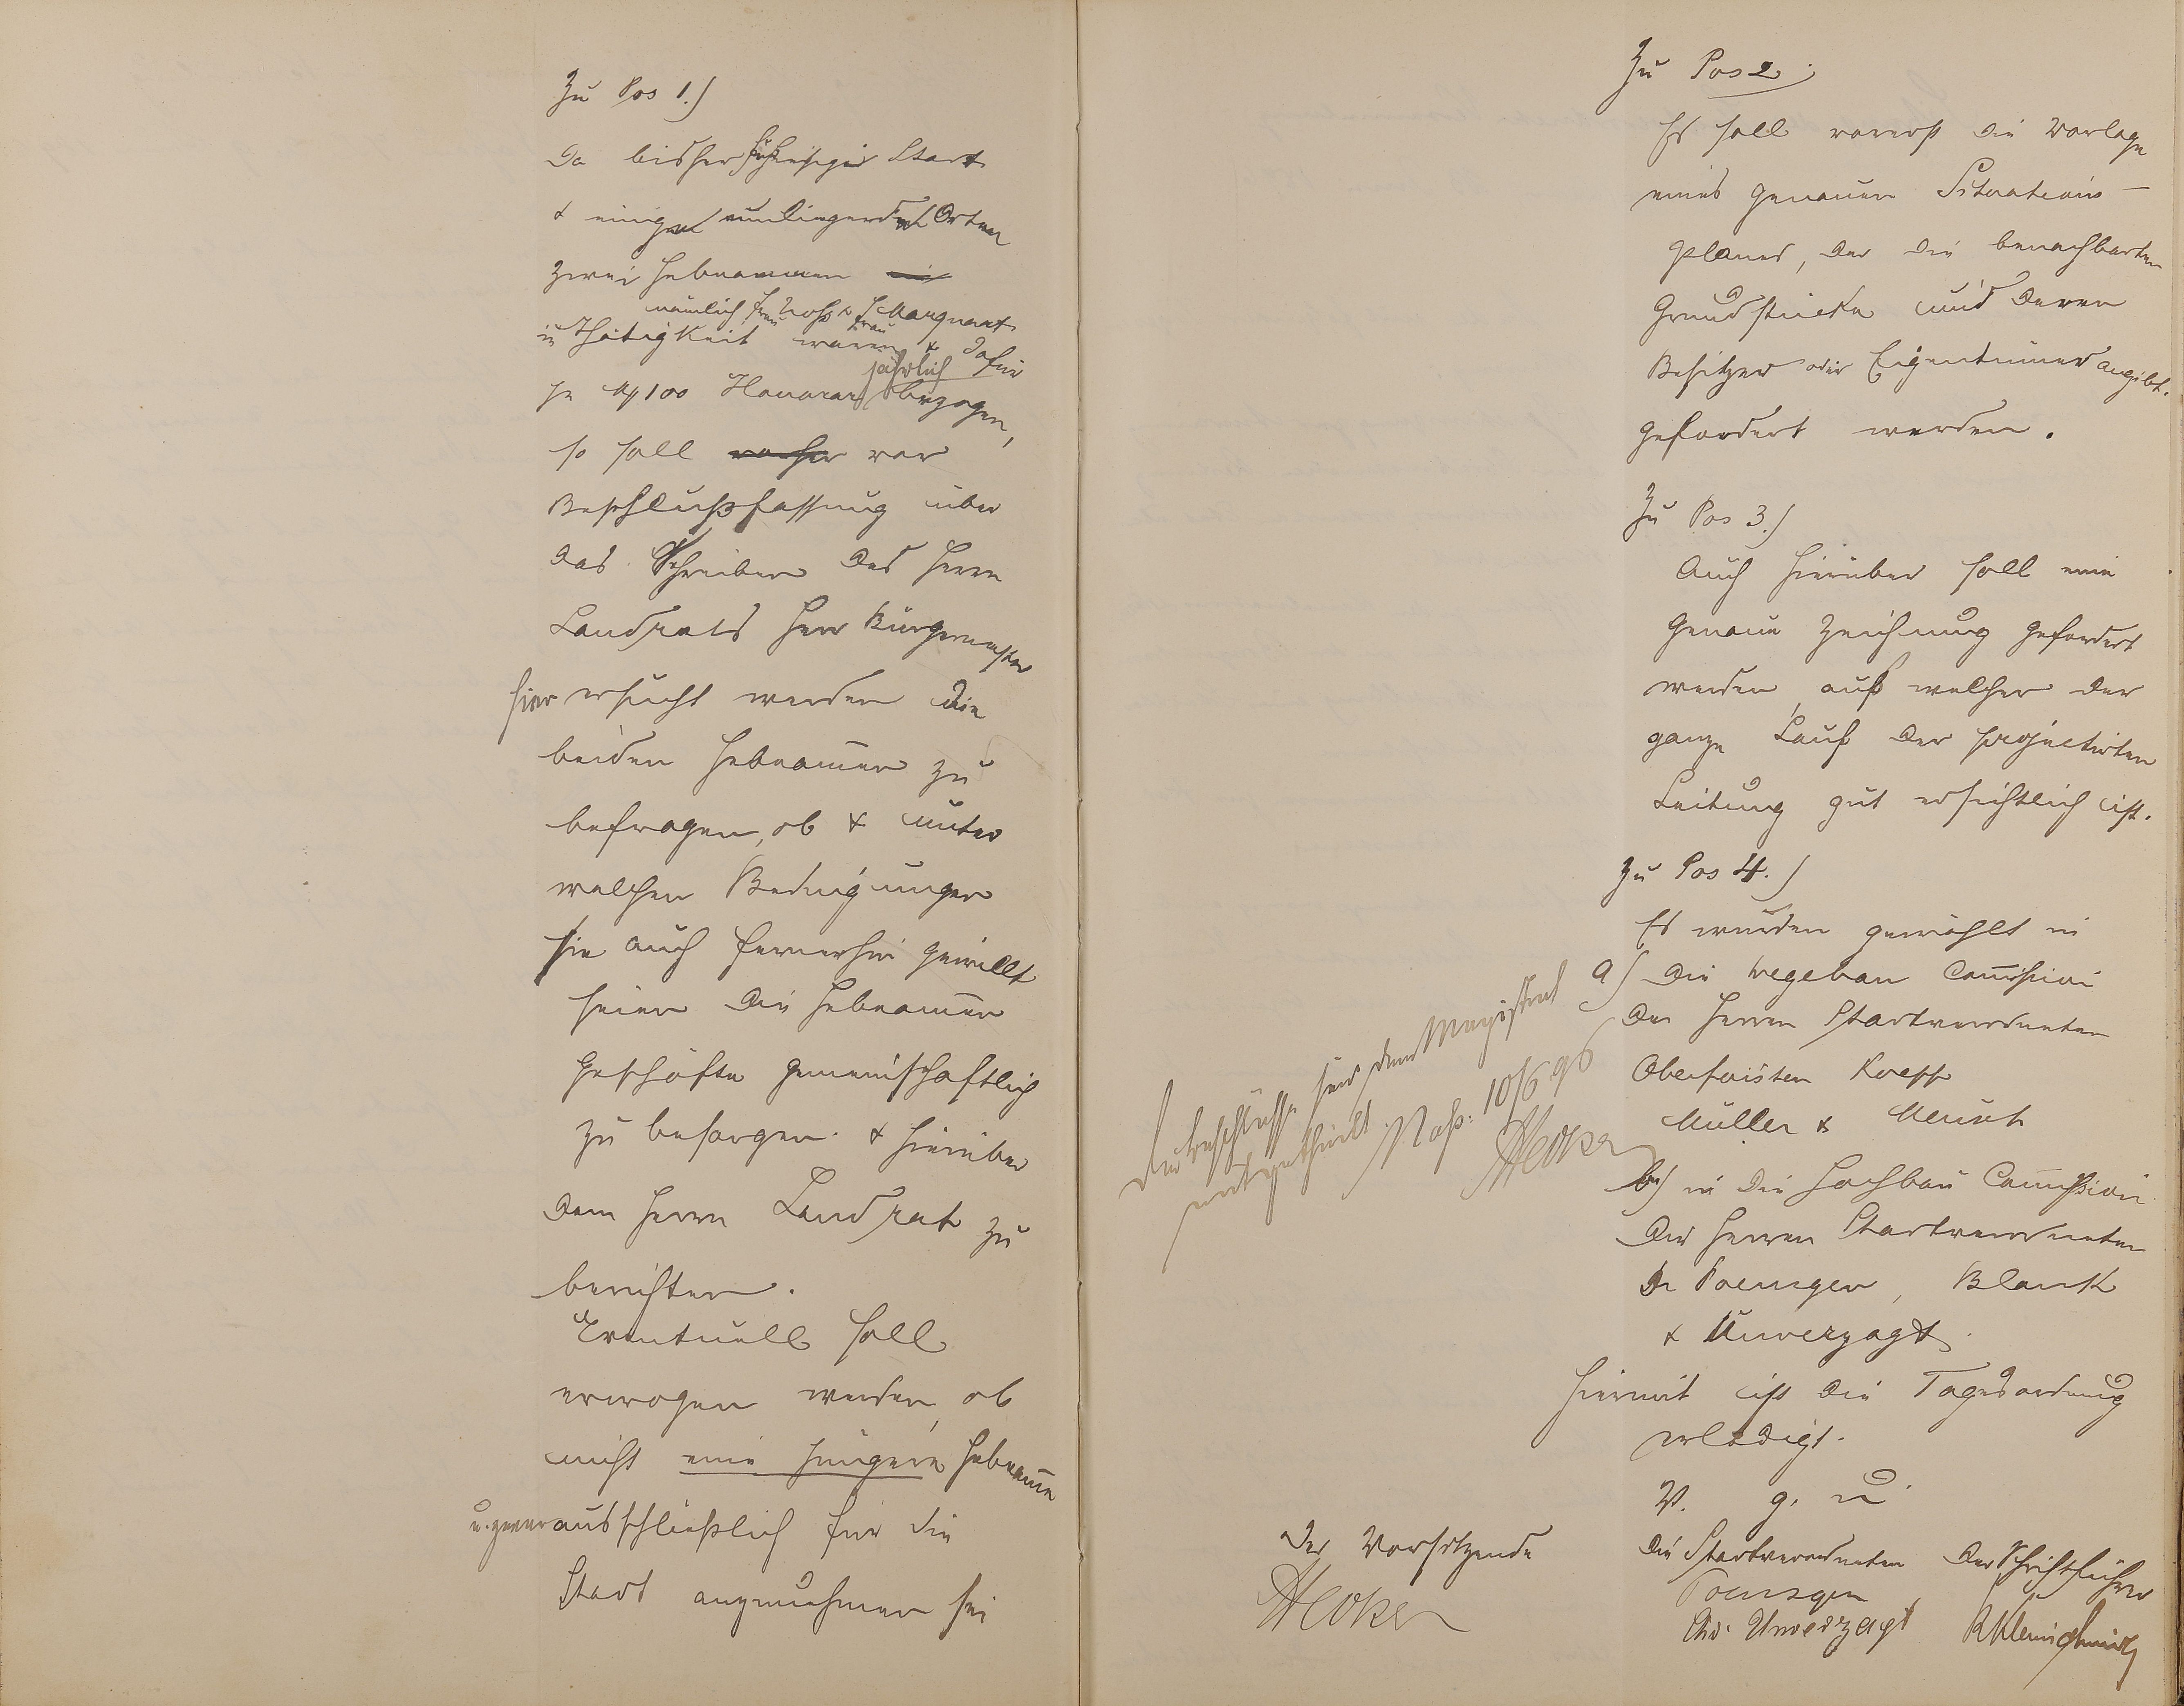 Zu Pos 1.)
Da bisher für hiesige Stadt
& einige umliegende Orten
zwei Hebeammen
nämlich Frau & Frau Marquart
in Thätigkeit waren & dafür
je M 100 Honorar jährlich bezogen,
so soll vorher vor
Beschlußfassung über
das Schreiben des Herrn
Landrats Herr Bürgermeister
hier ersucht werden die
beiden Hebeam̅en zu
befragen, ob & unter
welchen Bedingungen
sie auch fernerhin gewillt
seien die Hebeam̅en
Geschäfte gemeinschaftlich
zu besorgen & hierüber
dem Herrn Landrat zu
berichten.
Eventuell soll
erwogen werden, ob
nicht eine jüngere Hebeam̅e
u. zwar ausschließlich für die
Stadt anzunehmen sei
Zu Pos 2.
Es soll vorerst die Vorlage
eines genauen Situations-
planes, der die benachbarten
Grundstücke und deren
Besitzer oder Eigentümer angibt.
gefordert werden.
Zu Pos 3.)
Auch hierüber soll eine
genaue Zeichnung gefordert
werden, auf welcher der
ganze Lauf der projectirten
Leitung gut ersichtlich ist.
Zu Pos 4.)
Es wurden gewählt in
a) die Wegebau Com̅ission
die Herren Stadtverordneten
Oberförster Koepp
Müller &
b) in die Hochbau Com̅ission
die Herren Stadtverordneten
Dr Poensgen, Blank
& Unverzagt
Hiermit ist die Tagesordnung
erledigt.
V. g. u.
Die Beschlüsse sind dem Magistrat
mitgetheilt. Nass: 10/6 96
Der Vorsitzende
Die Stadtverordneten Der Schriftführer
Poensgen
Chr. Unverzagt R Kleinschmidt